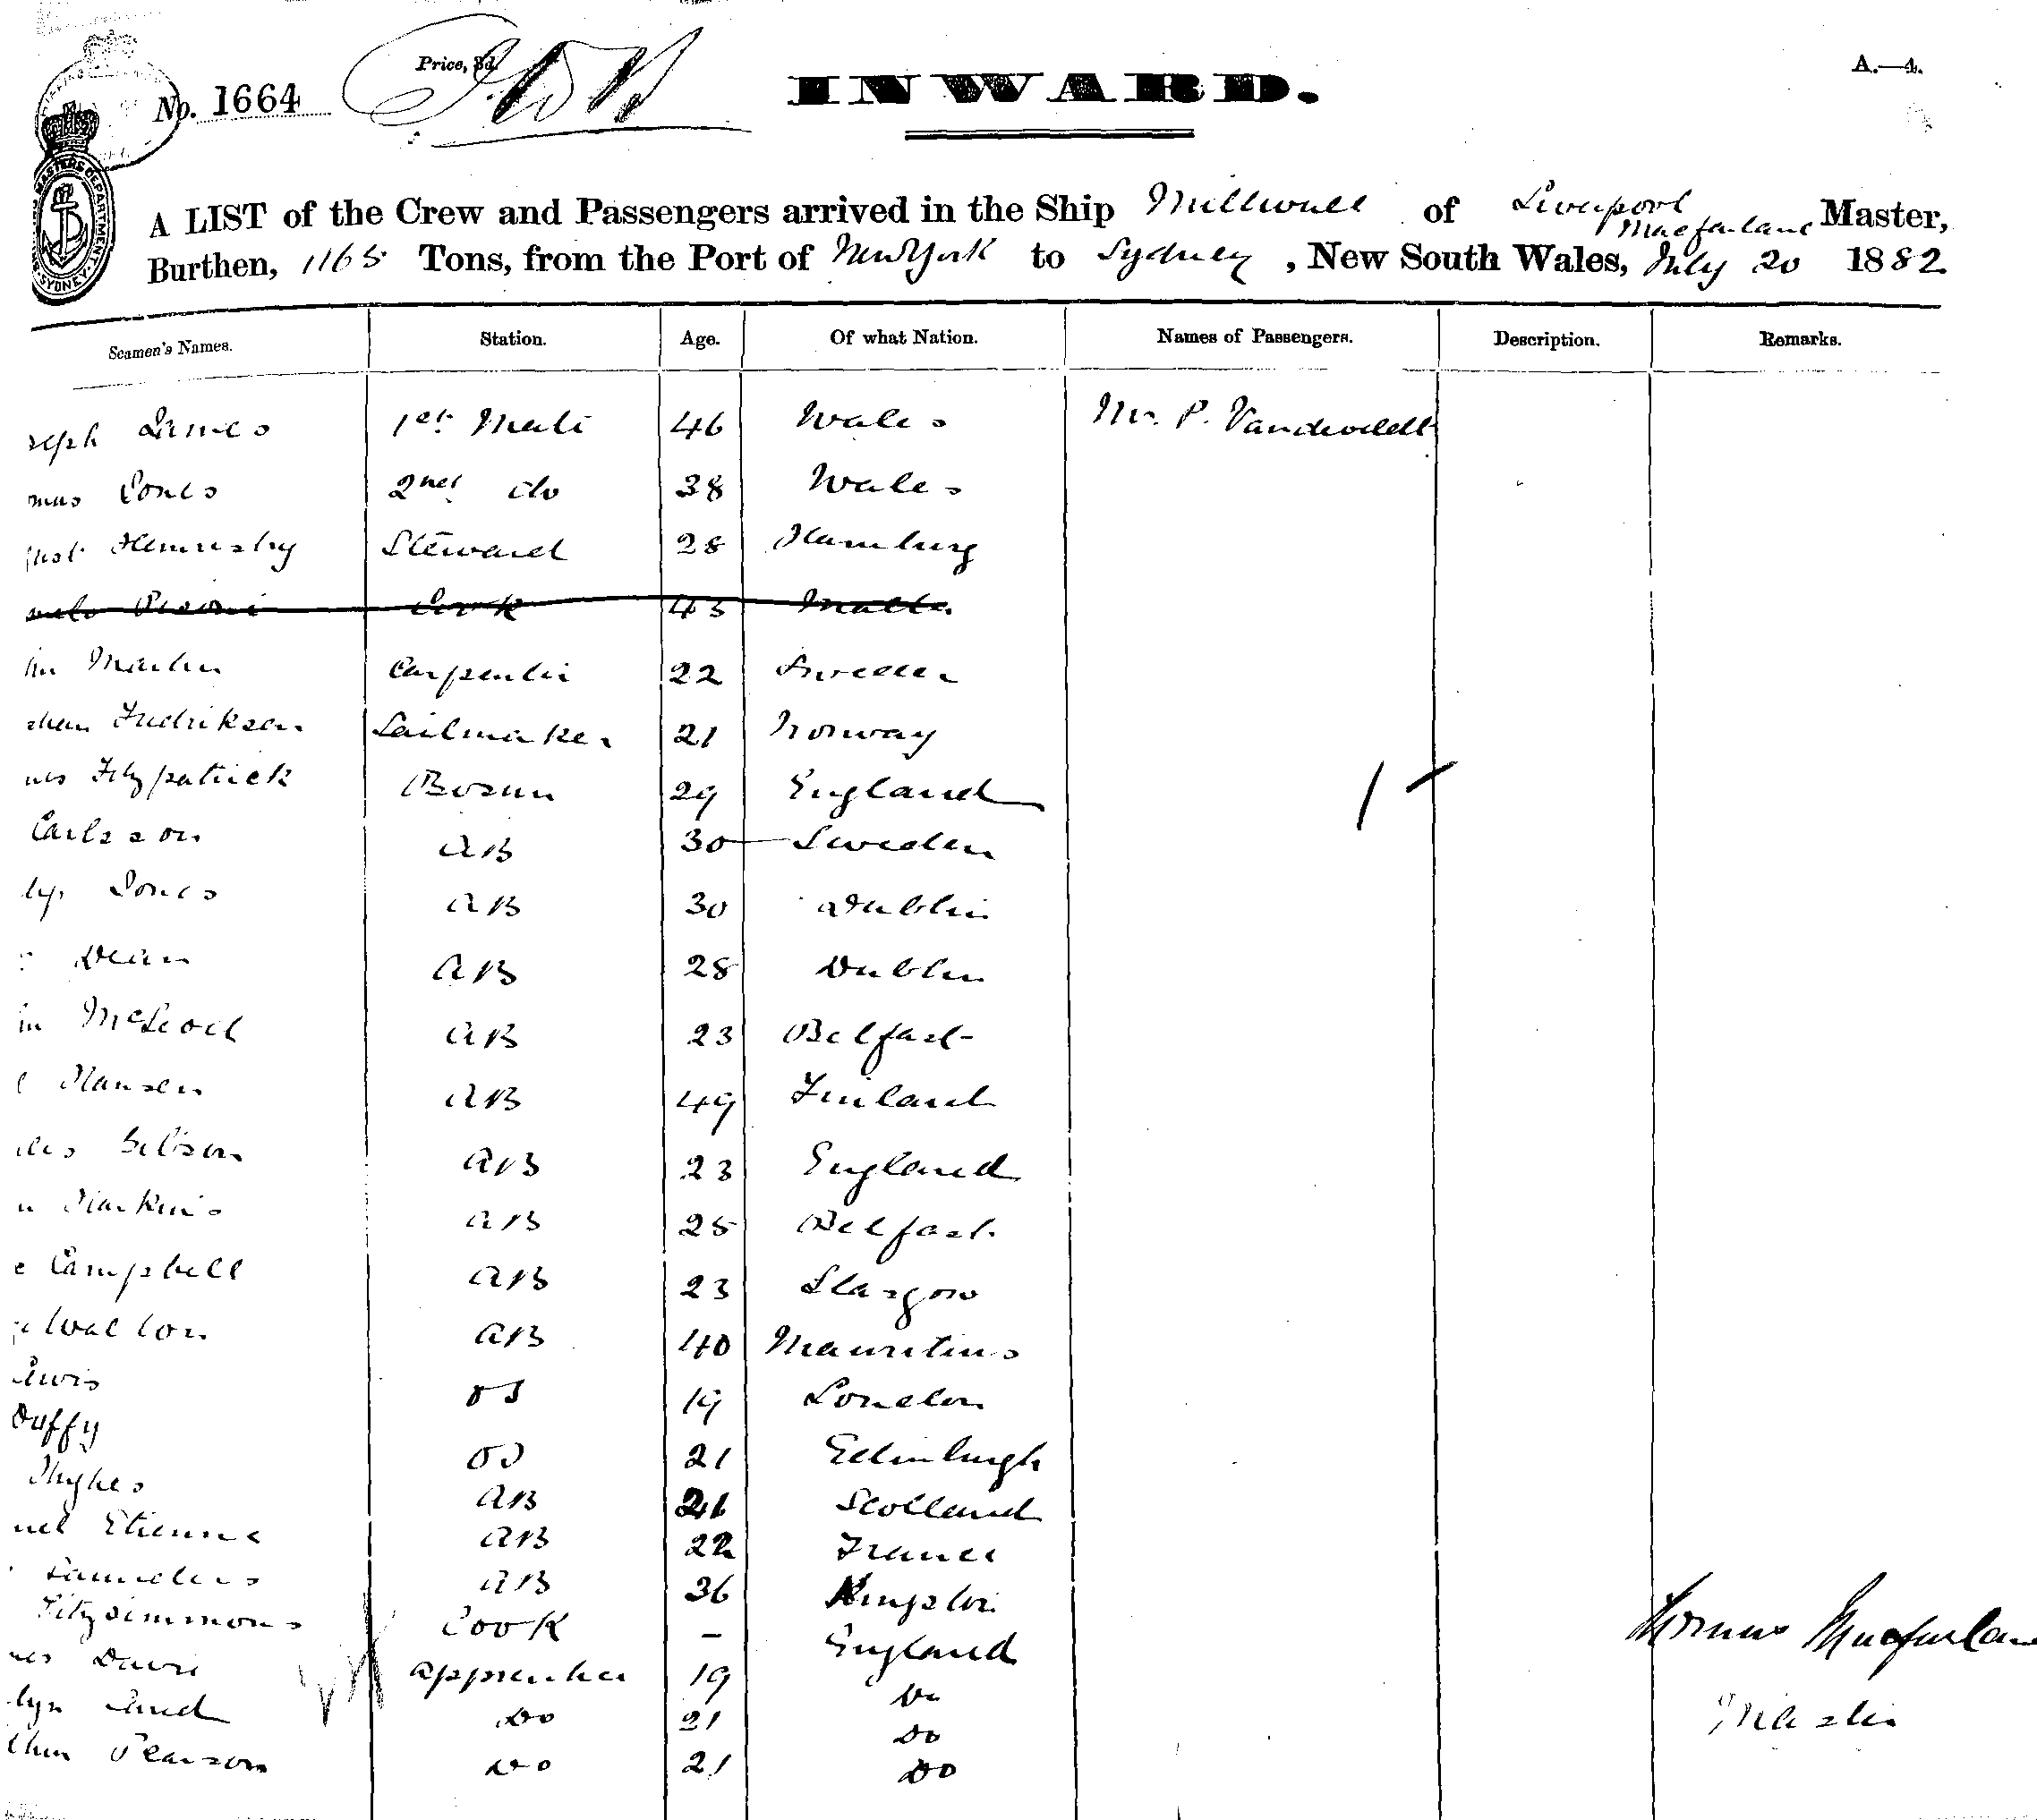 No. 1664
Price, 3d.
INWARD.
A.—4.
A LIST of the Crew and Passengers arrived in the Ship Millwall of Liverpool
Macfarlane Master,
Burthen, 1165 Tons, from the Port of New York to Sydney, New South Wales, July 20 1882
Seamen's Names. Station. Age. Of what Nation. Names of Passengers. Description. Remarks.
seph James 1st Mate 46 Wales Mr. P. Vandeveldt
mas Jones 2nd do 38 Wales
Steward 28 Hamburg
Cook 43 Malta
Martin Carpenter 22 Sweden
Fredriksen Sailmaker 21 Norway
mes Fitzpatrick Bosun 29 England
Carlsson AB 30 Sweden
Jones AB 30 Dublin
Dean AB 28 Dublin
McLeod AB 23 Belfast
Hansen AB 49 Finland
les Gibson AB 23 England
Harkins AB 25 Belfast
e Campbell AB 23 Glasgow
Walton AB 40 Mauritius
Lewis OS 19 London
Duffy OS 21 Edinburgh
Hughes AB Scotland
Etienne AB 22 France
Saunders AB 36 Kingston
Fitzsimmons Cook – England
mes Davis Apprentice 19 Do
Do 21 Do
Pearson Do 21 Do
Thomas Macfarlane
Master